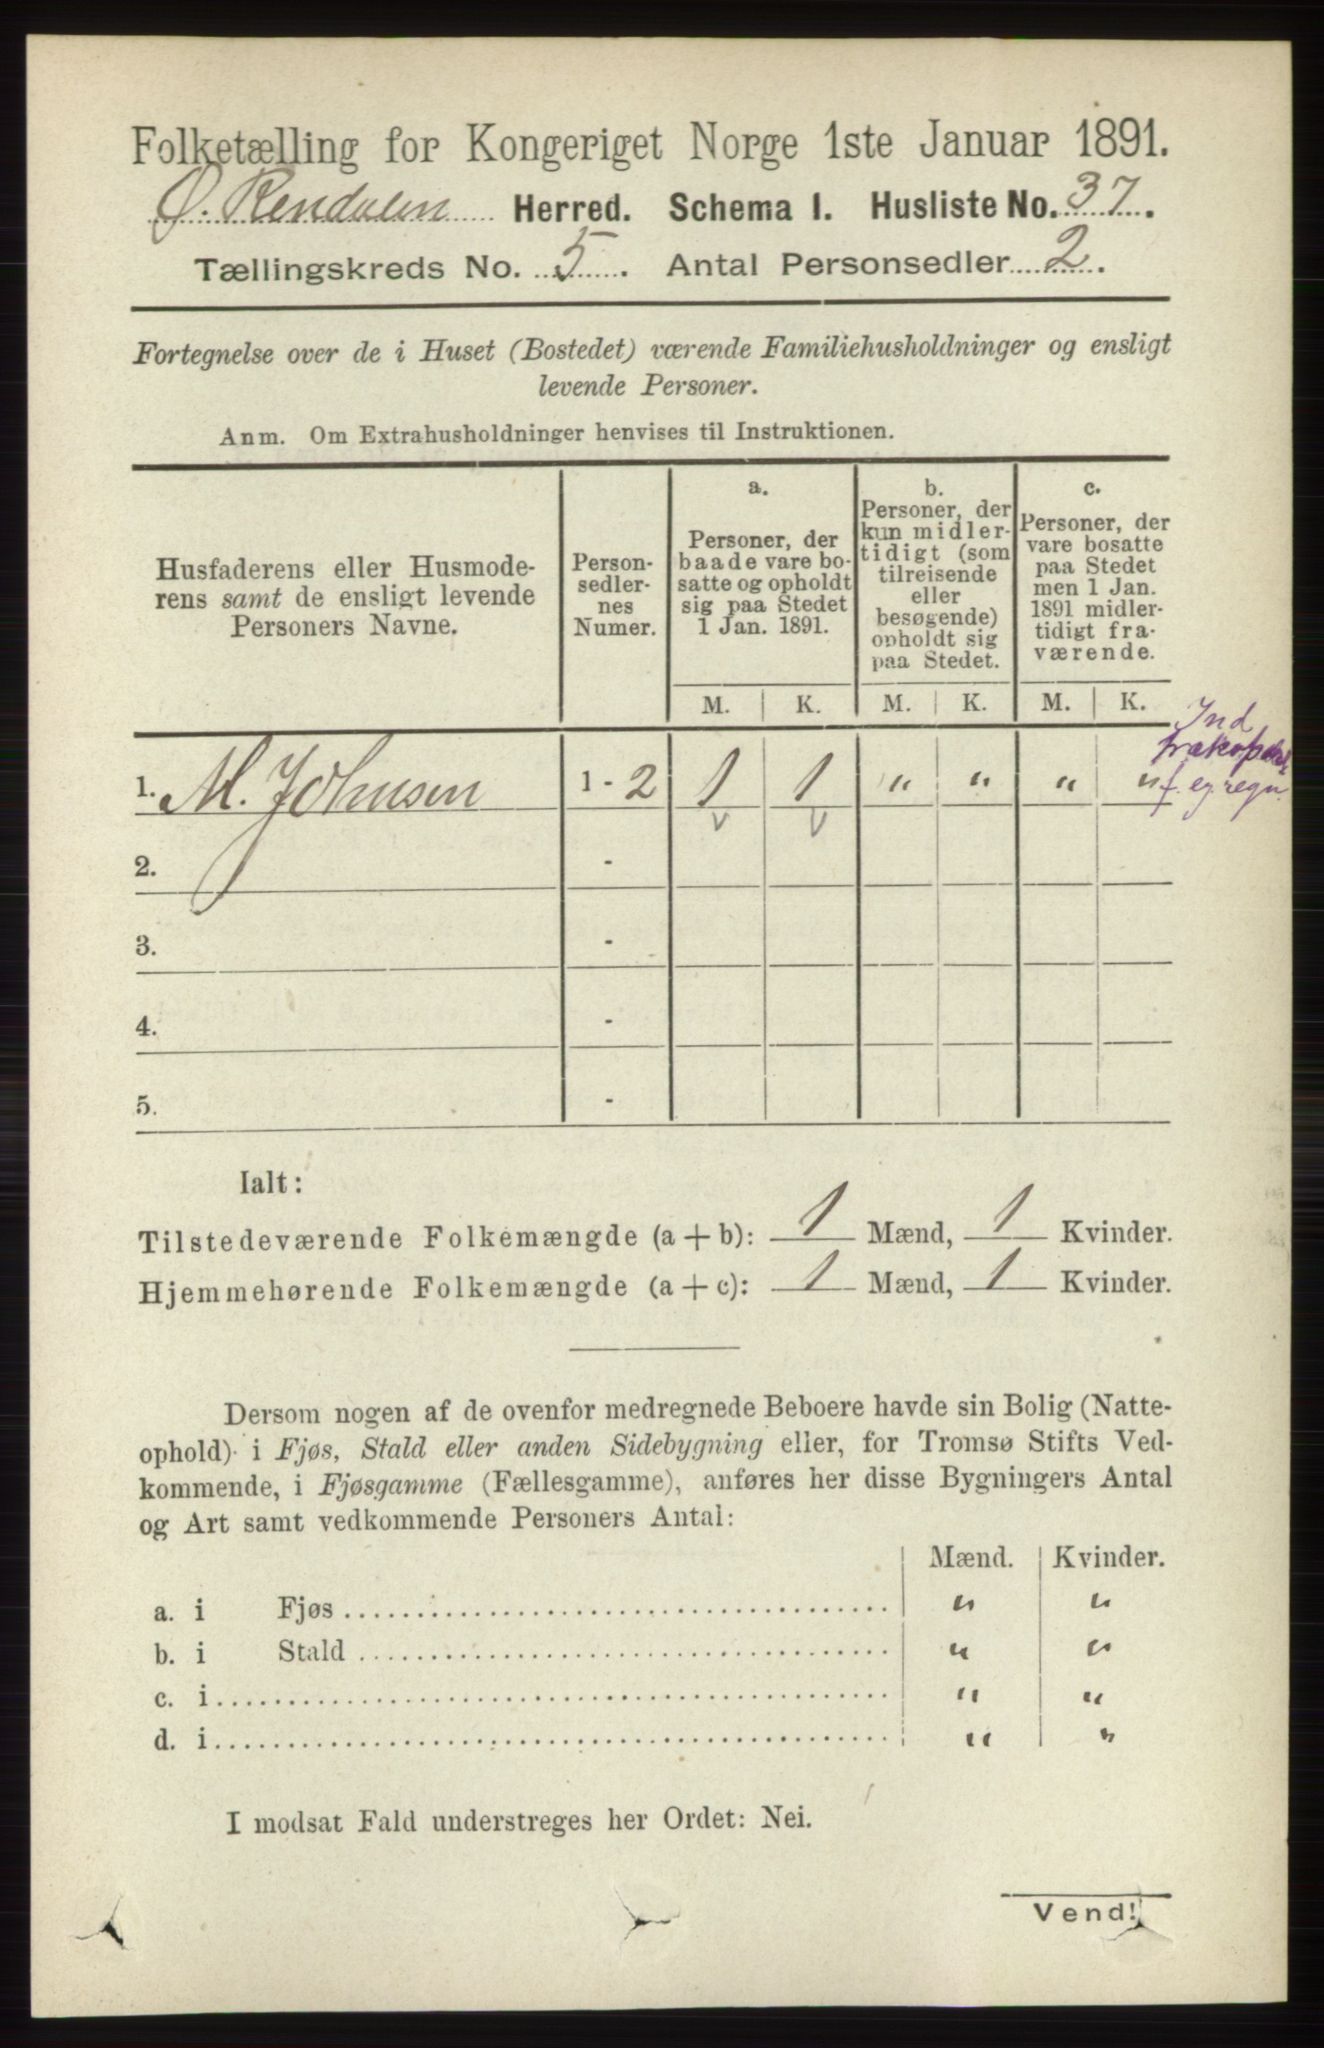 Folketælling for Kongeriget Norge 1ste Januar 1891.
Ø. Rendalen Herred. Schema I. Husliste No. 37.
Tællingskreds No. 5. Antal Personsedler 2.
Fortegnelse over de i Huset (Bostedet) værende Familiehusholdninger og ensligt
levende Personer.
Anm. Om Extrahusholdninger henvises til Instruktionen.
Husfaderens eller Husmode-
rens samt de ensligt levende
Personers Navne.
Person-
sedler-
nes
Numer.
a.
Personer, der
baade vare bo-
satte og opholdt
sig paa Stedet
1 Jan. 1891.
b.
Personer, der
kun midler-
tidigt (som
tilreisende
eller
besøgende)
opholdt sig
paa Stedet.
c.
Personer, der
vare bosatte
paa Stedet
men 1 Jan.
1891 midler-
tidigt fra-
værende.
M. K. M. K. M. K.
Ind
f. eg. regn.
1. M. Johnsen 1 - 2 1 1 " " " "
v v
2. -
3. -
4. -
5. -
Ialt:
Tilstedeværende Folkemængde (a + b): 1 Mænd, 1 Kvinder.
Hjemmehørende Folkemængde (a + c): 1 Mænd, 1 Kvinder.
Dersom nogen af de ovenfor medregnede Beboere havde sin Bolig (Natte-
ophold) i Fjøs, Stald eller anden Sidebygning eller, for Tromsø Stifts Ved-
kommende, i Fjøsgamme (Fællesgamme), anføres her disse Bygningers Antal
og Art samt vedkommende Personers Antal:
Mænd. Kvinder.
a. i Fjøs " "
b. i Stald " "
c. i " "
d. i " "
I modsat Fald understreges her Ordet: Nei.
Vend!